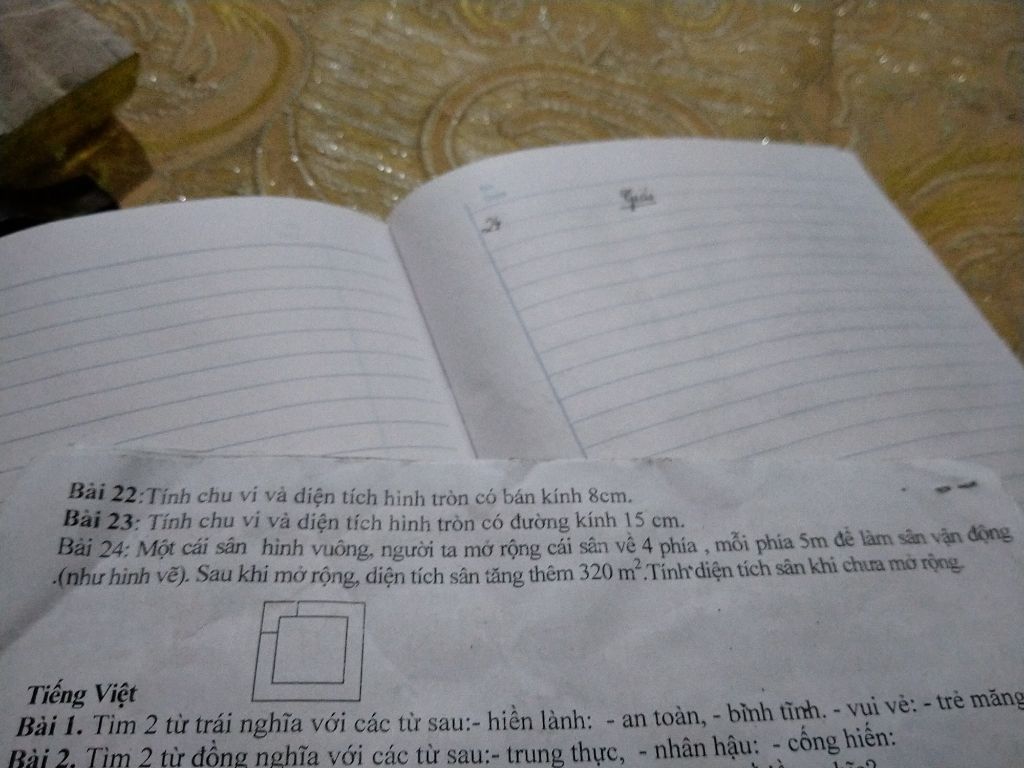 Giải
24
Bài 22:Tính chu vi và diện tích hình tròn có bán kính 8cm.
Bài 23: Tính chu vi và diện tích hình tròn có đường kính 15 cm.
Bài 24: Một cái sân hình vuông, người ta mở rộng cái sân về 4 phía , mỗi phía 5m để làm sân vận động
.(như hình vẽ). Sau khi mở rộng, diện tích sân tăng thêm 320 m².Tính diện tích sân khi chưa mở rộng.
Tiếng Việt
Bài 1. Tìm 2 từ trái nghĩa với các từ sau:- hiền lành: - an toàn, - bình tĩnh. - vui vẻ: - trẻ măng
Bài 2. Tìm 2 từ đồng nghĩa với các từ sau:- trung thực, - nhân hậu: - cống hiến: